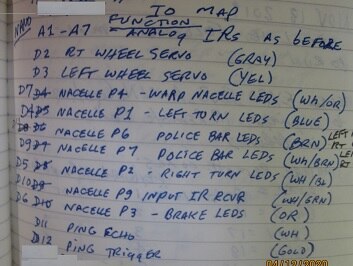 IO MAP
FUNCTION
A1-A7 ANALOG IRs AS BEFORE
D2 RT WHEEL SERVO (GRAY)
D3 LEFT WHEEL SERVO (YEL)
D7 D4 NACELLE P4 - WARP NACELLE LEDS (WH/OR)
D4 D5 NACELLE P1 - LEFT TURN LEDS (BLUE)
D8 D6 NACELLE P6 POLICE BAR LEDS (BRN) LEFT
D9 D7 NACELLE P7 POLICE BAR LEDS (WH/BRN) RT
D5 D8 NACELLE P2 - RIGHT TURN LEDS (WH/BL)
D10 D9 NACELLE P9 INPUT IR RCVR (WH/GRN)
D6 D10 NACELLE P3 - BRAKE LEDS (OR)
D11 PING ECHO (WH)
D12 PING TRIGGER (GOLD)
04/12/2020